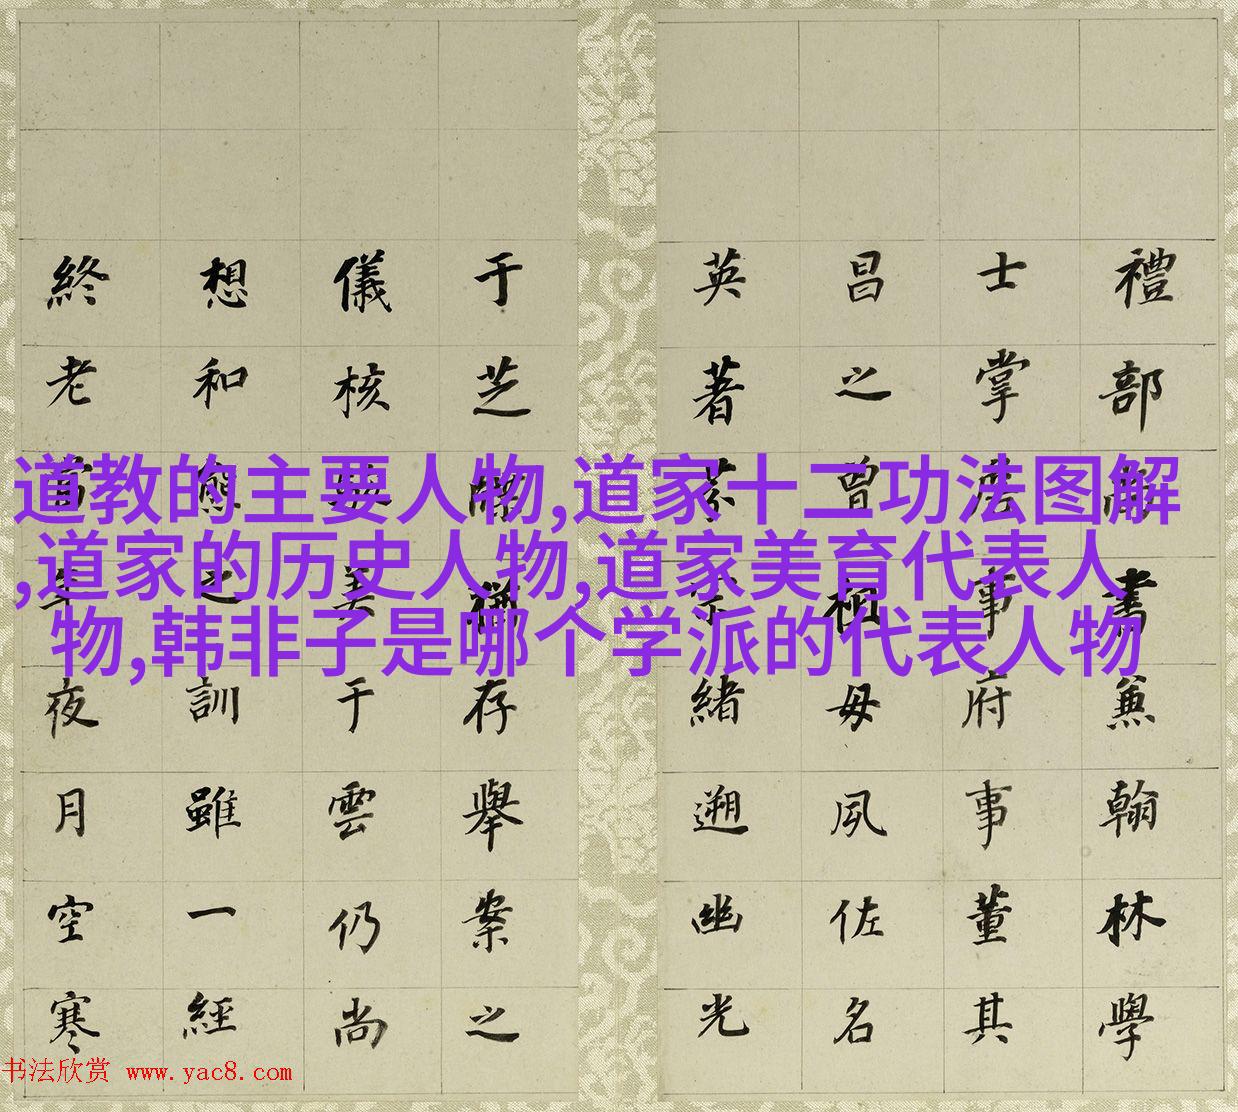 禮部尚書兼翰林學
士掌詹事府事董其
昌之曾祖母夙佐名
英著 緒遡幽光
于芝 存舉案之
儀核 美于雲仍尚
想和 之訓雖一經
終老當年夜月空寒
道教的主要人物,道家十二功法图解
,道家的历史人物,道家美育代表人
物,韩非子是哪个学派的代表人物
书法欣赏 www.yac8.com